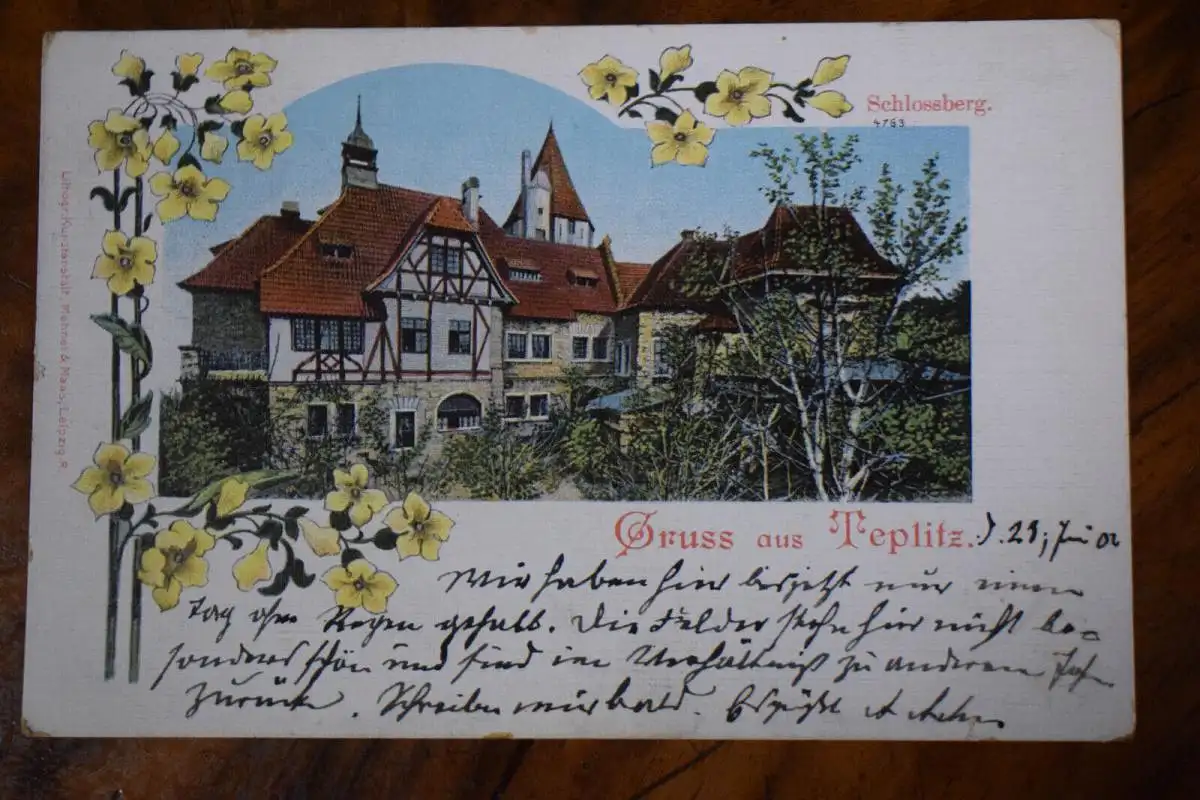 Schlossberg.
4763
Lithogr. Kunstanstalt, Mehner & Maas, Leipzig-R.
Gruss aus Teplitz. d. 29. Juni 02
Wir haben hier bis jetzt nur einen
Tag ohne Regen gehabt. Die Felder stehn hier nicht be-
sonders schön und sind im Verhältniß zu anderen
zurück. Schreiben mir bald. Es grüßt